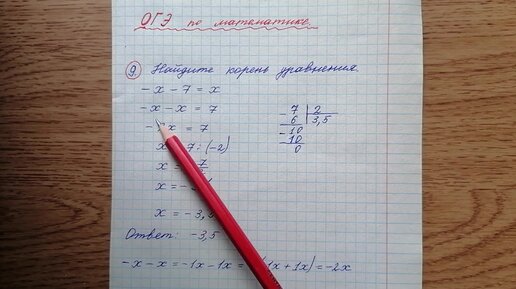 ОГЭ по математике.
9. Найдите корень уравнения.
- x - 7 = x
- x - x = 7
x = 7
: (-2)
x = 7
x = -
x = - 3,
Ответ: -3,5
- x - x = -1x - 1x = 1x + 1x) = -2x
7 | 2
- 6 | 3,5
- 10
- 10
0